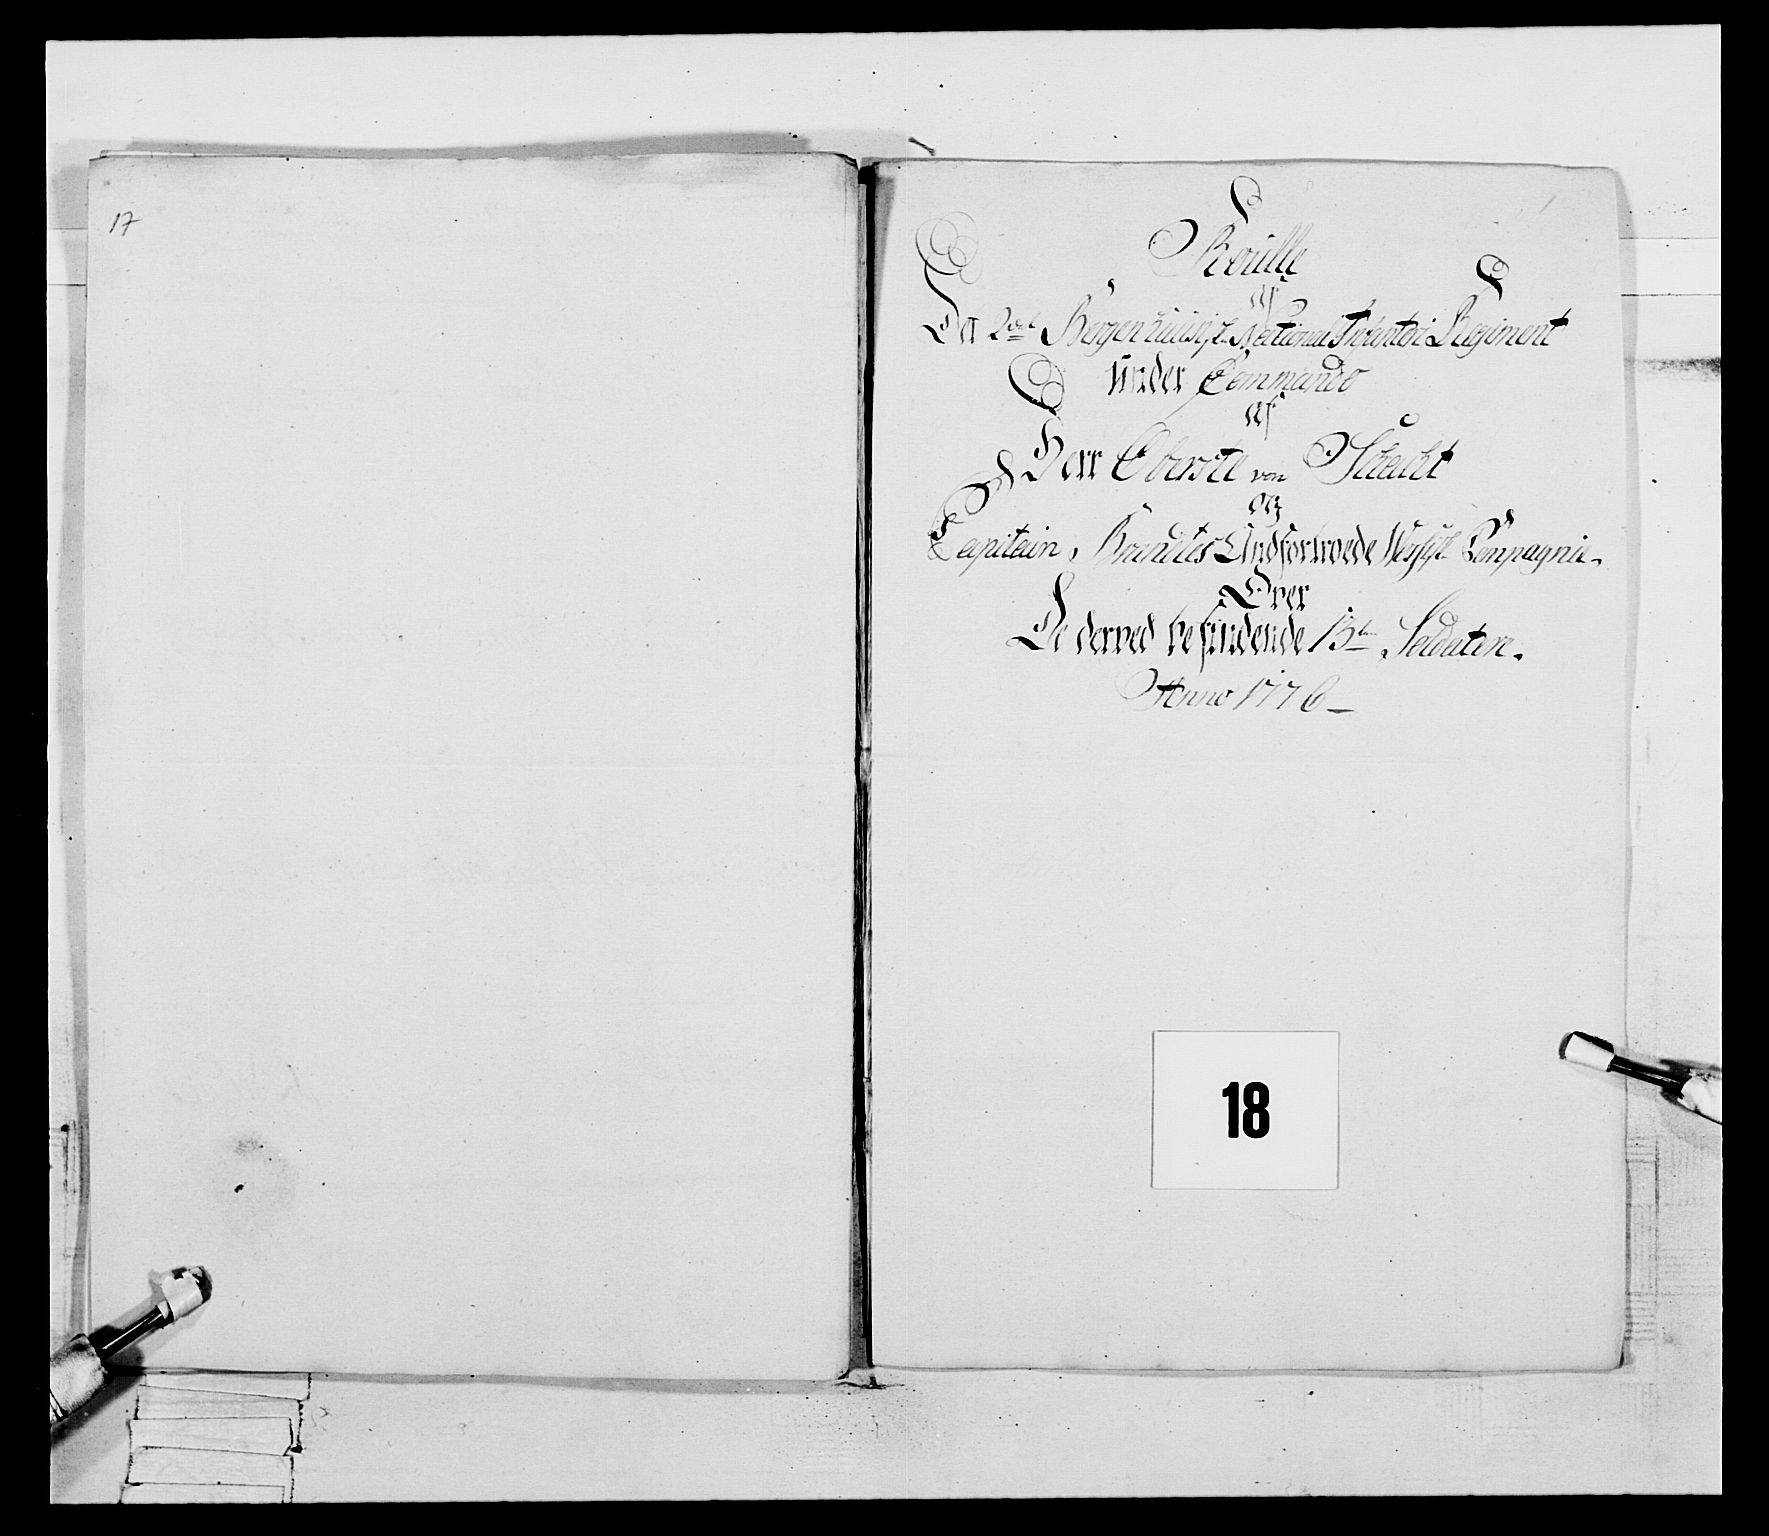 17
Roulle
Af
Det 2det Bergenhuusiske National Infanteri Regiment
under Commando
Af
Herr Oberste von
Og
Capitain, Brandtes Undfortroede Compagnie.
Over
De derved befindende Soldatere.
Anno 1776
18